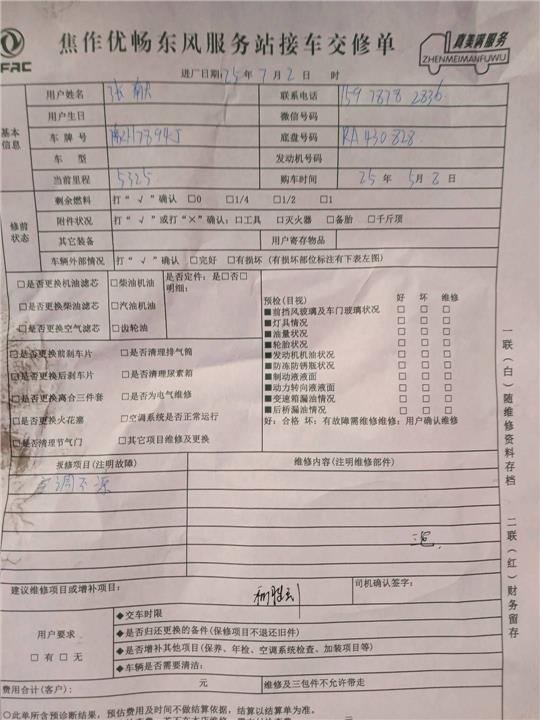 FRC
焦作优畅东风服务站接车交修单
真美满服务
ZHENMEIMANFUWU
进厂日期:25年7月2日 时
基本信息
用户姓名 张 联系电话 159 7878 2836
用户生日 微信号码
车牌号 H7894J 底盘号码 RA430828
车型 发动机号码
当前里程 5325 购车时间 25年5月8日
修前状态
剩余燃料 打“√”确认 □0 □1/4 □1/2 □1
附件状况 打“√”或打“×”确认:□工具 □灭火器 □备胎 □千斤顶
其它装备 用户寄存物品
车辆外部情况 打“√”确认 □完好 □有损坏(有损坏部位标注有下表左图)
□是否更换机油滤芯 □柴油机油
□是否更换柴油滤芯 □汽油机油
□是否更换空气滤芯 □齿轮油
是否定件:是□否□
明细:
□是否更换前刹车片 □是否清理排气筒
□是否更换后刹车片 □是否清理尿素箱
□是否更换离合三件套 □是否为电气维修
□是否更换火花塞 □空调系统是否正常运行
□是否清理节气门 □其它项目维修及更换
预检(目视) 好 坏 维修
■前挡风玻璃及车门玻璃状况 □ □ □
■灯具情况 □ □ □
■油量状况 □ □ □
■轮胎状况 □ □ □
■发动机机油状况 □ □ □
■防冻防锈瓶状况 □ □ □
■制动液液面 □ □ □
■动力转向液液面 □ □ □
■变速箱漏油情况 □ □ □
■后桥漏油情况 □ □ □
好:合格 坏:有故障需维修维修:用户确认维修
报修项目(注明故障) 维修内容(注明维修部件)
空调不凉
建议维修项目或增补项目: 司机确认签字:
用户要求
□有 □无
◆交车时限
◆是否归还更换的备件(保修项目不退还旧件)
◆是否增补其他项目(保养、年检、空调系统检查、加装项目等)
◆车辆是否需要清洁:
费用合计(客户): 元 维修及三包件不允许带走
○此单所含预诊断结果,预估费用及时间不做结算依据,结算以结算单为准。
一联(白)随维修资料存档 二联(红)财务留存